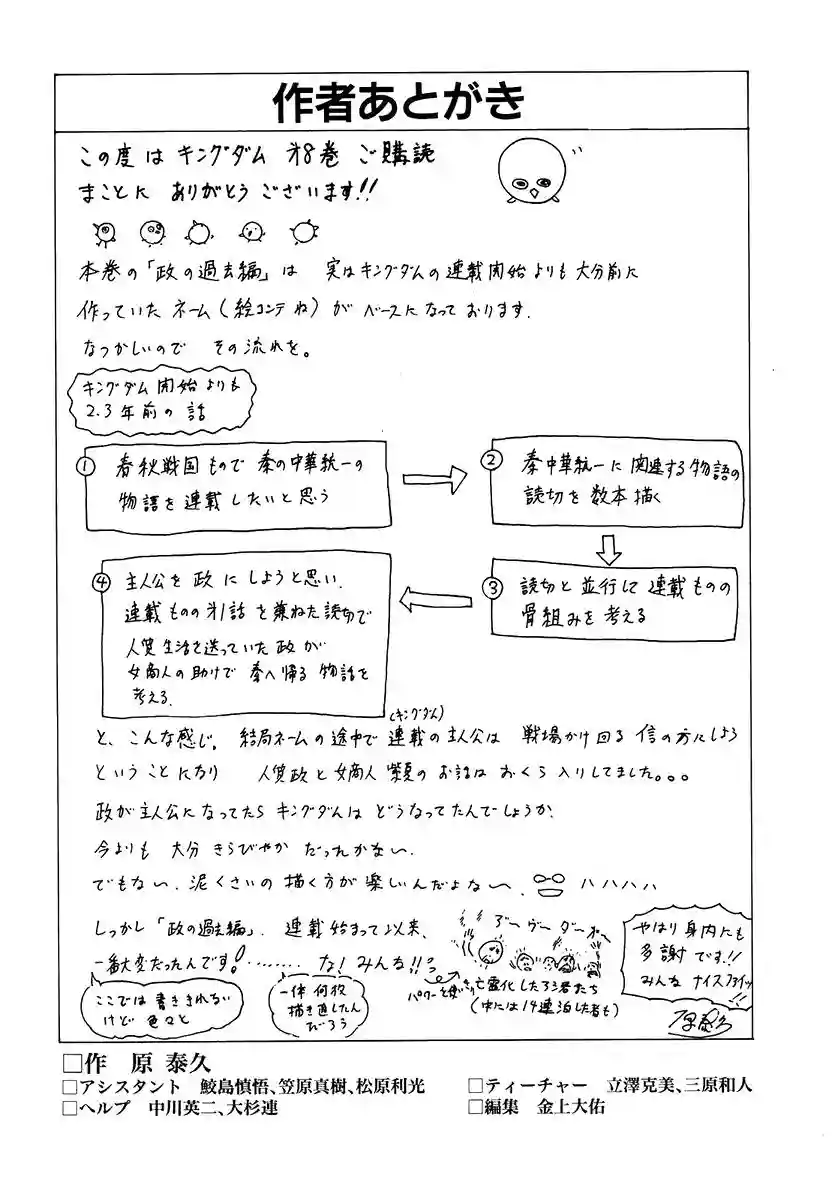 作者あとがき
この度は キングダム 才8巻 ご購読
まことに ありがとう ございます!!
本巻の「政の過去編」は 実はキングダムの連載開始よりも大分前に
作っていた ネーム(絵コンテね)が ベースになっております.
なつかしいので その流れを。
キングダム開始よりも
2.3年前の話
① 春秋戦国もので 秦の中華統一の
物語を連載したいと思う
② 秦中華統一に関連する物語の
読切を数本描く
③ 読切と並行して連載ものの
骨組みを考える
④ 主人公を 政 にしようと思い.
連載ものの才1話 を兼ねた読切で
人質生活を送っていた 政 が
女商人の助けで 秦へ帰る 物語を
考える.
(キングダム)
と、こんな感じ。 結局ネームの途中で 連載の主人公は 戦場かけ回る 信の方にしよう
ということになり 人質政と女商人 紫夏の お話は おくら入りしてました。。。
政が主人公になってたら キングダムは どうなってたんでしょうか.
今よりも 大分 きらびやか だったかな い.
でもな い. 泥くさいの 描く方が 楽しいんだよな〜. ハハハハ
しっかし「政の過去編」. 連載始まって以来、
一番大変だったんです!········ な! みんな!!
アーヴーダーオー
パワーを使いきり亡霊化した3者たち
(中には14連泊した者も)
ここでは 書ききれない
けど 色々と
一体 何枚
描き直したん
だろう
やはり 身内にも
多謝です!!
みんな ナイスファイッ!!
原泰久
□作 原 泰久
□アシスタント 鮫島慎悟、笠原真樹、松原利光
□ヘルプ 中川英二、大杉連
□ティーチャー 立澤克美、三原和人
□編集 金上大佑